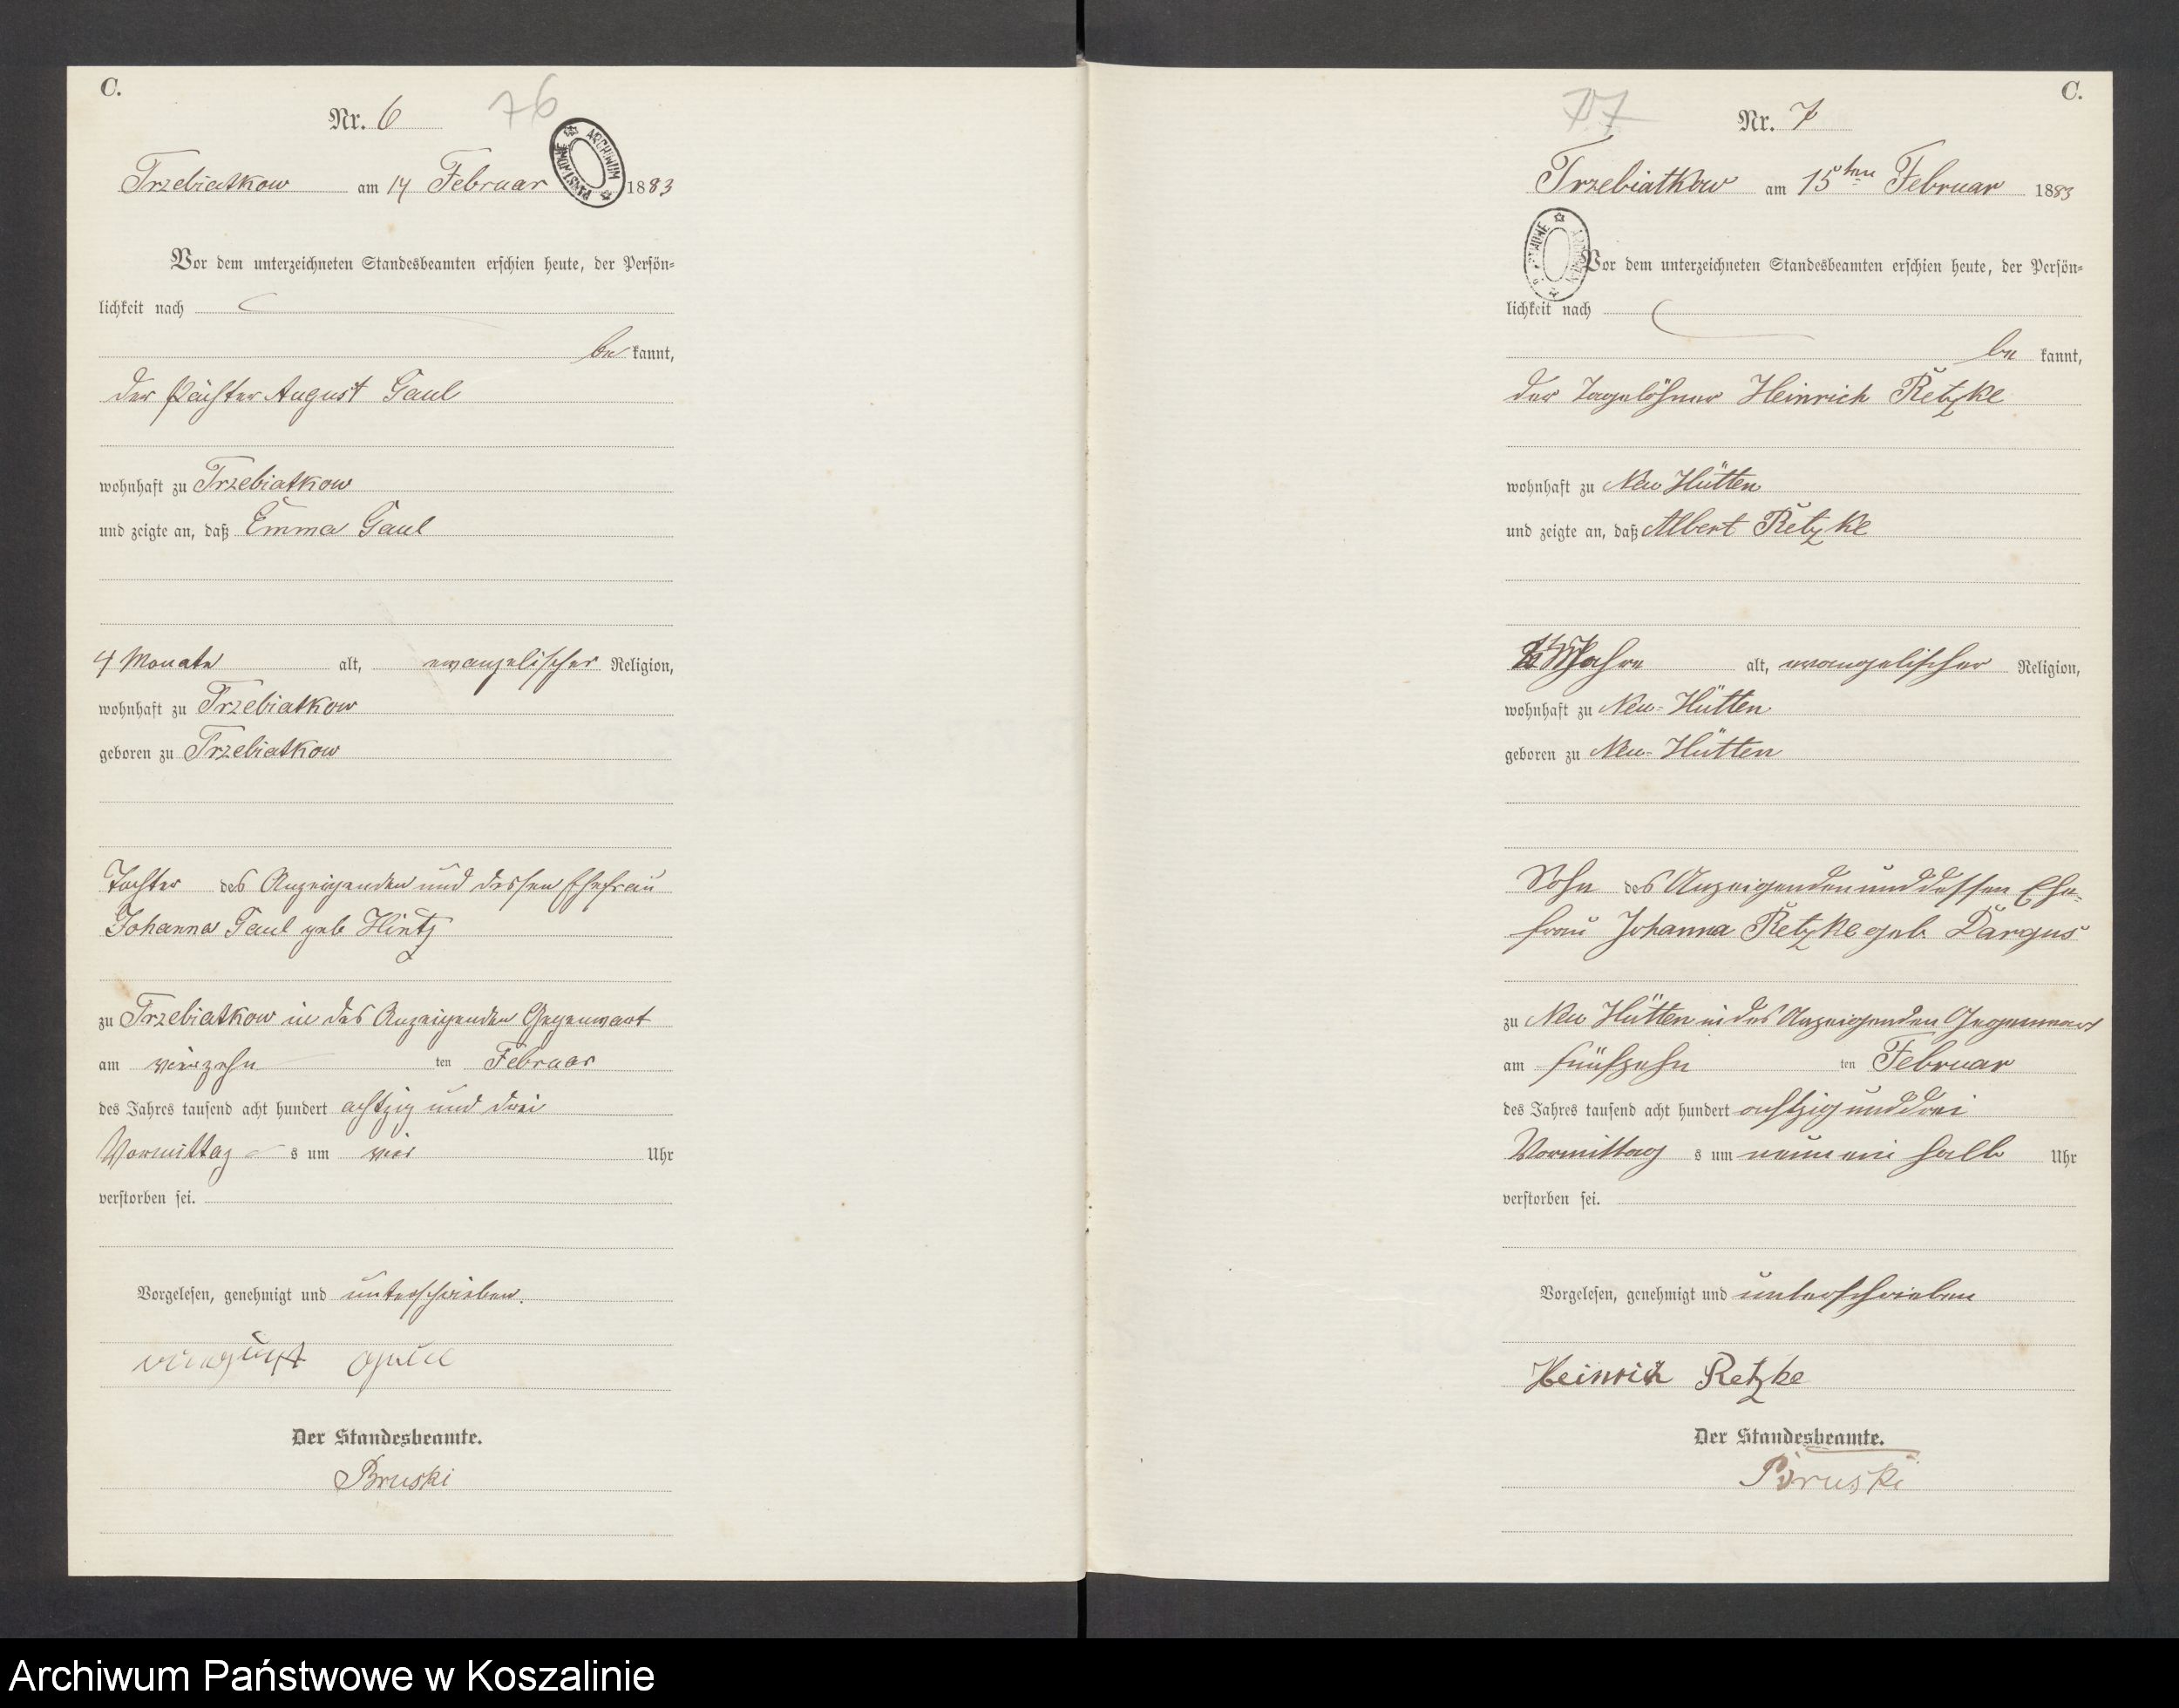 C.
Nr. 6
76
ARCHIWUM PAŃSTWOWE
Trzebiatkow am 14 Februar 1883
Vor dem unterzeichneten Standesbeamten erschien heute, der Persön=
lichkeit nach
be kannt,
der Pächter August Gaul
wohnhaft zu Trzebiatkow
und zeigte an, daß Emma Gaul
4 Monate alt, evangelischer Religion,
wohnhaft zu Trzebiatkow
geboren zu Trzebiatkow
Tochter des Anzeigenden und dessen Ehefrau
Johanna Gaul geb Hintz
zu Trzebiatkow in des Anzeigenden Gegenwart
am vierzehn ten Februar
des Jahres tausend acht hundert achtzig und drei
Vormittag s um vier Uhr
verstorben sei.
Vorgelesen, genehmigt und unterschrieben.
August Gaul
Der Standesbeamte.
Bruski
C.
77
Nr. 7
Trzebiatkow am 15ten Februar 1883
Vor dem unterzeichneten Standesbeamten erschien heute, der Persön=
lichkeit nach
be kannt,
der Tagelöhner Heinrich Retzke
wohnhaft zu Neu Hütten
und zeigte an, daß Albert Retzke
Jahre alt, evangelischer Religion,
wohnhaft zu Neu=Hütten
geboren zu Neu=Hütten
Sohn des Anzeigenden und dessen Ehe=
frau Johanna Retzke geb. Dargus
zu Neu Hütten in des Anzeigenden Gegenwart
am fünfzehn ten Februar
des Jahres tausend acht hundert achtzig und drei
Vormittag s um neun ein halb Uhr
verstorben sei.
Vorgelesen, genehmigt und unterschrieben
Heinrich Retzke
Der Standesbeamte.
Bruski
Archiwum Państwowe w Koszalinie